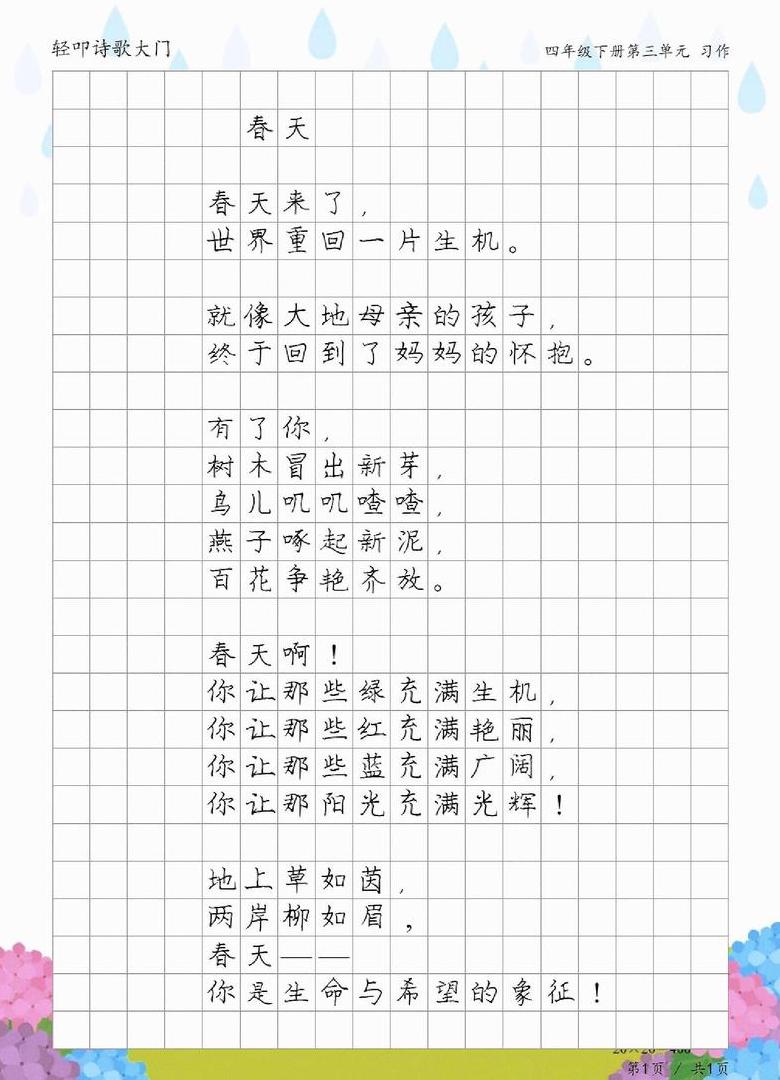 轻叩诗歌大门
四年级下册第三单元 习作
春天
春天来了，
世界重回一片生机。
就像大地母亲的孩子，
终于回到了妈妈的怀抱。
有了你，
树木冒出新芽，
鸟儿叽叽喳喳，
燕子啄起新泥，
百花争艳齐放。
春天啊！
你让那些绿充满生机，
你让那些红充满艳丽，
你让那些蓝充满广阔，
你让那阳光充满光辉！
地上草如茵，
两岸柳如眉，
春天——
你是生命与希望的象征！
20×20=400
第1页 / 共1页